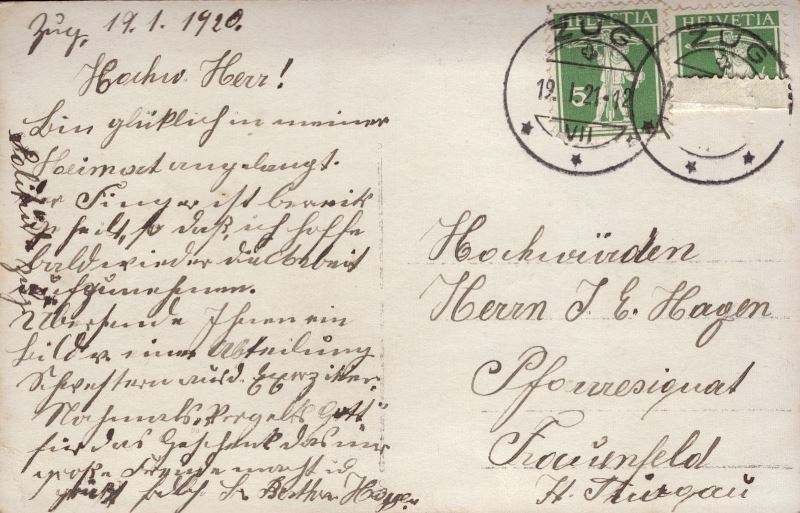 Zug, 19.1.1920.
Hochw. Herr!
Bin glücklich in meiner
Heimat angelangt.
Finger ist bereits
geheilt, so daß ich hoffe
bald wieder die Arbeit
aufzunehmen.
Übersende Ihnen ein
Bild v. einer Abteilung
Schwestern aus d. Exerzitien.
Nochmals "Vergelts Gott"
für das Geschenk das mir
große Freude macht u.
grüßt
HELVETIA
5
ZUG
19. I. 21-12
VII
HELVETIA
ZUG
Hochwürden
Herrn J. E. Hagen
Pfarresignat
Frauenfeld
Kt. Thurgau